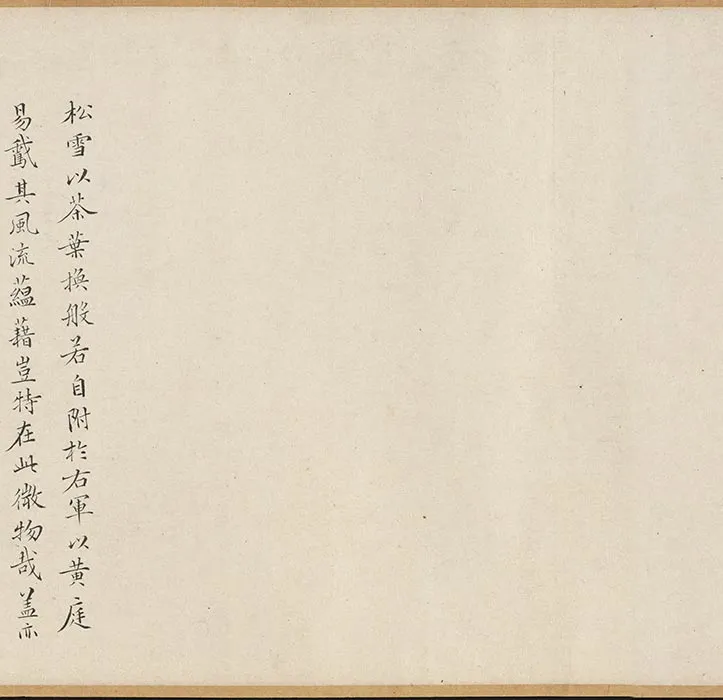 松雪以茶葉換般若自附於右軍以黃庭
易鵞其風流蘊藉豈特在此微物哉盖亦